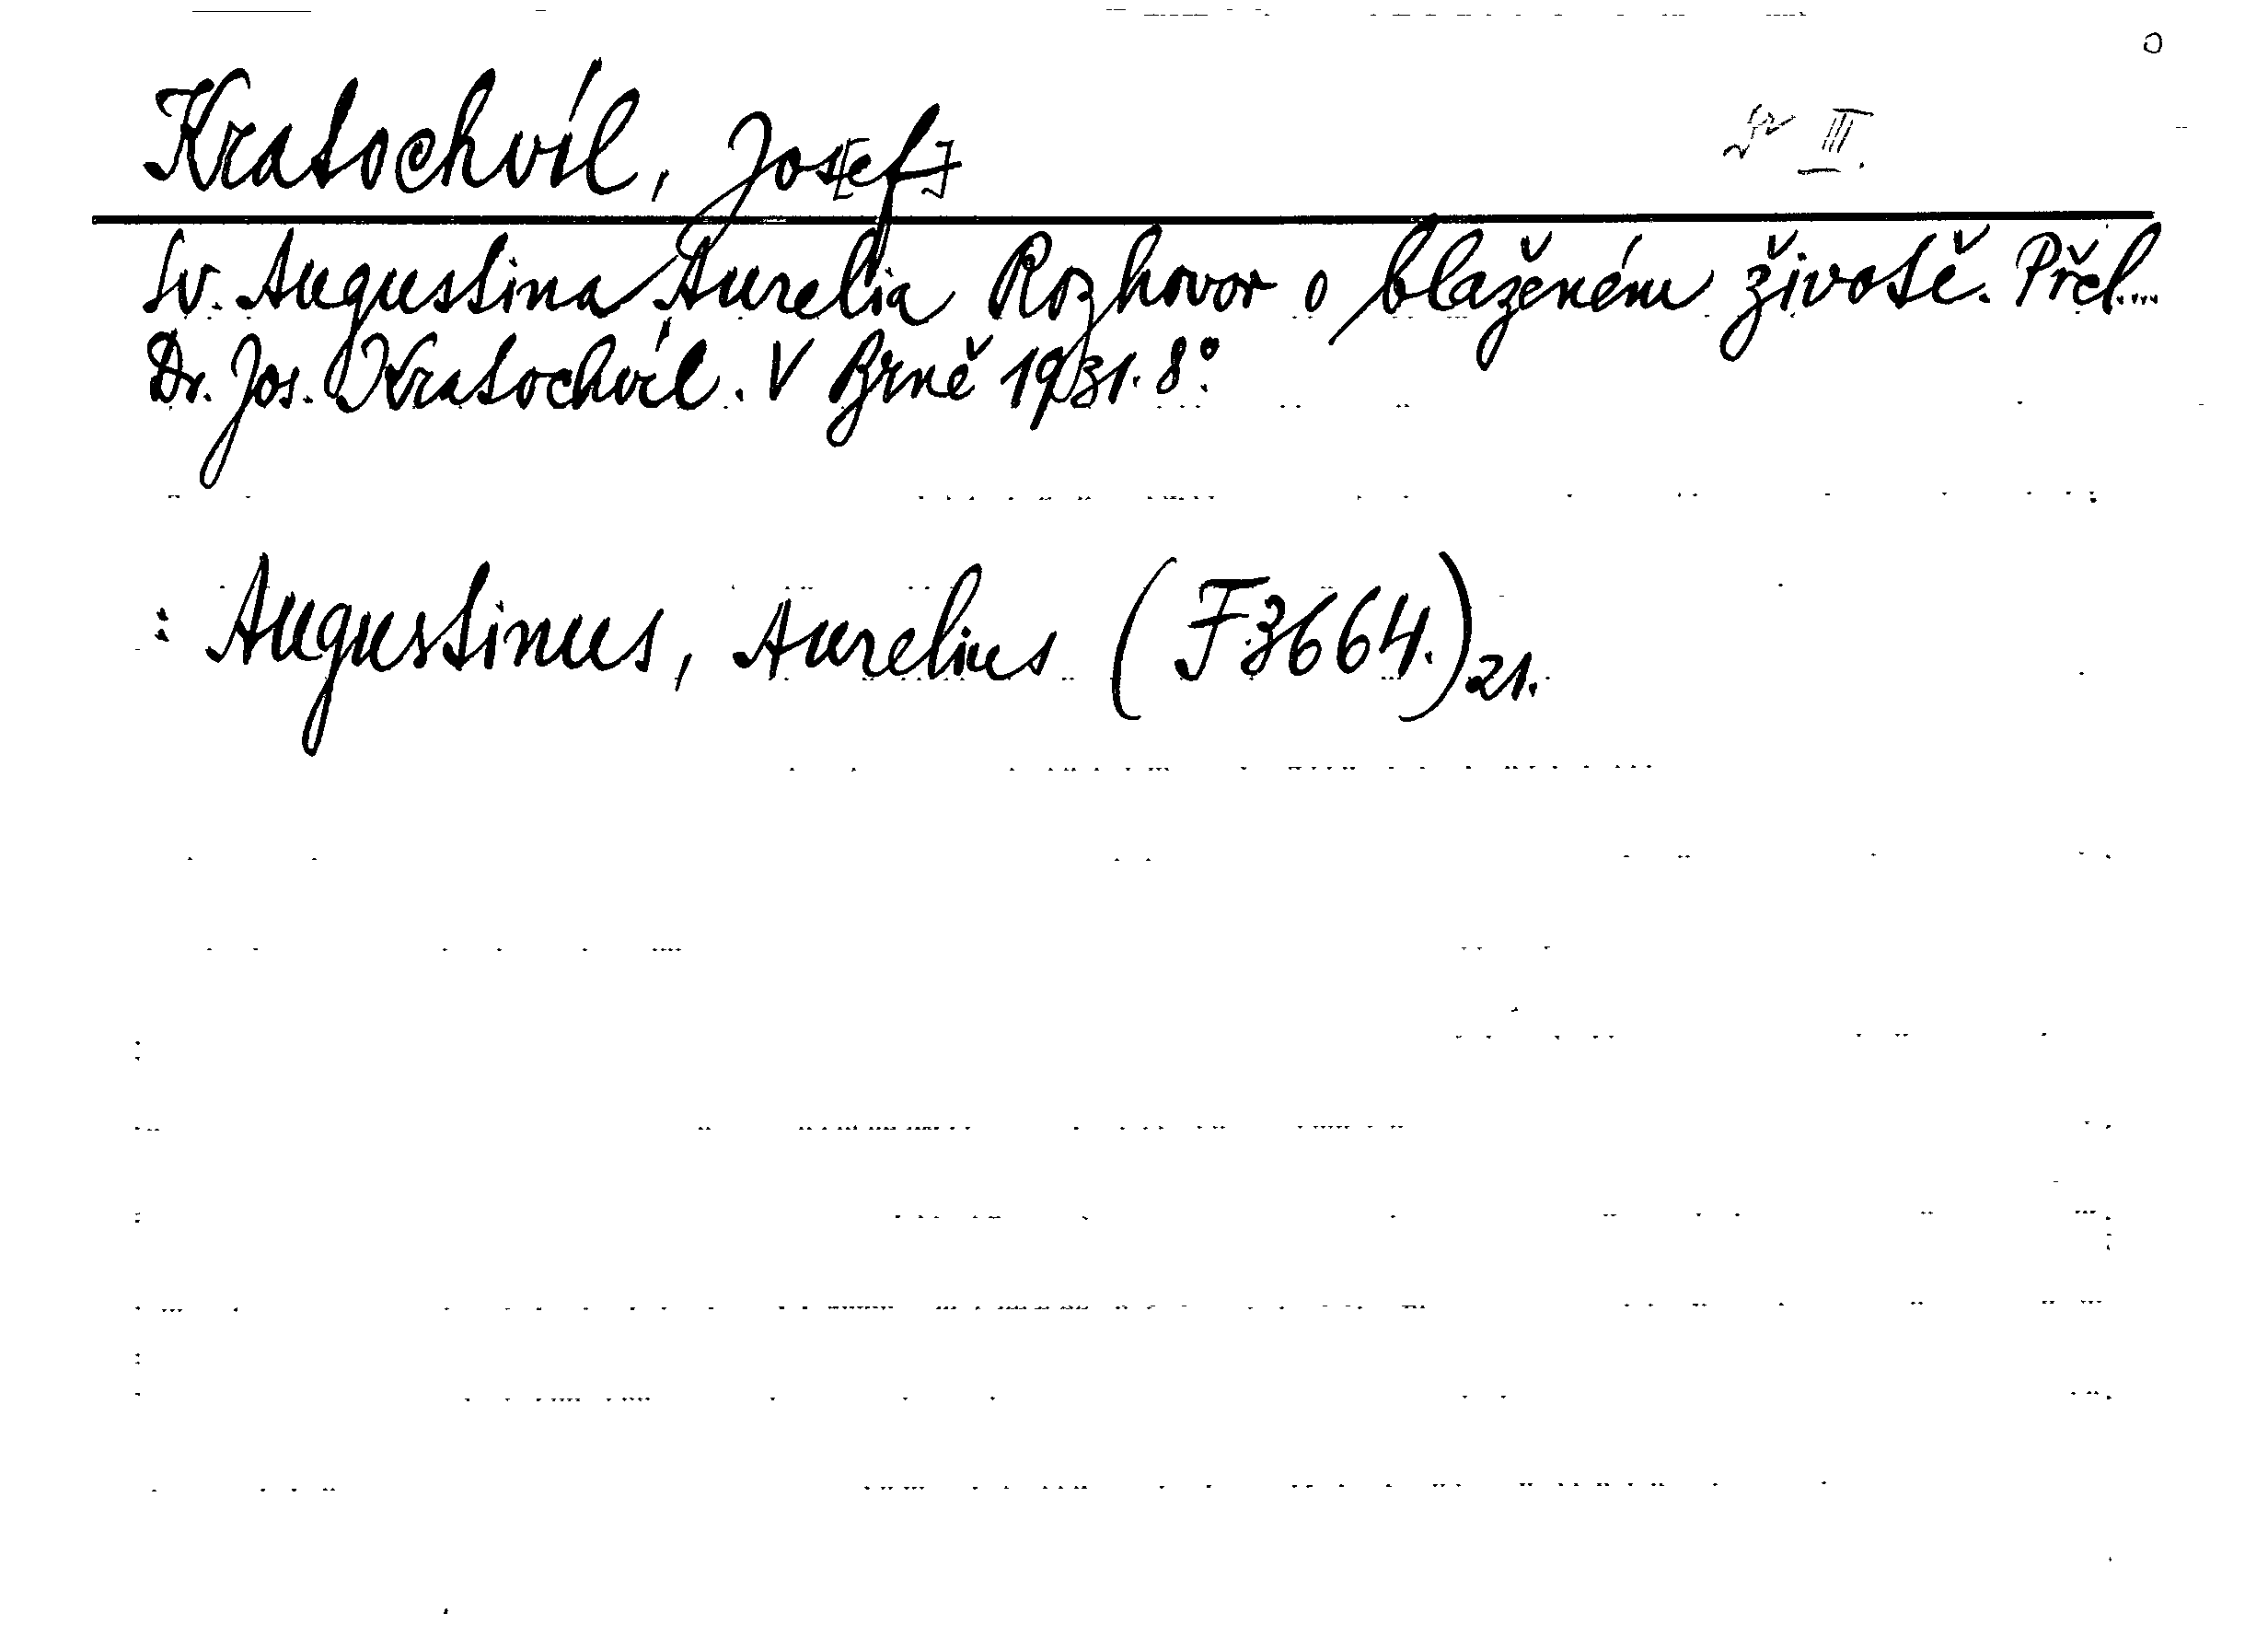 Kratochvíl, Jos[ef] III.
Sv. Augustina Aurelia Rozhovor o blaženém životě. Přel....
Dr. Jos. Kratochvíl. V Brně 1931. 8°.
: Augustinus, Aurelius (F3664.)21.